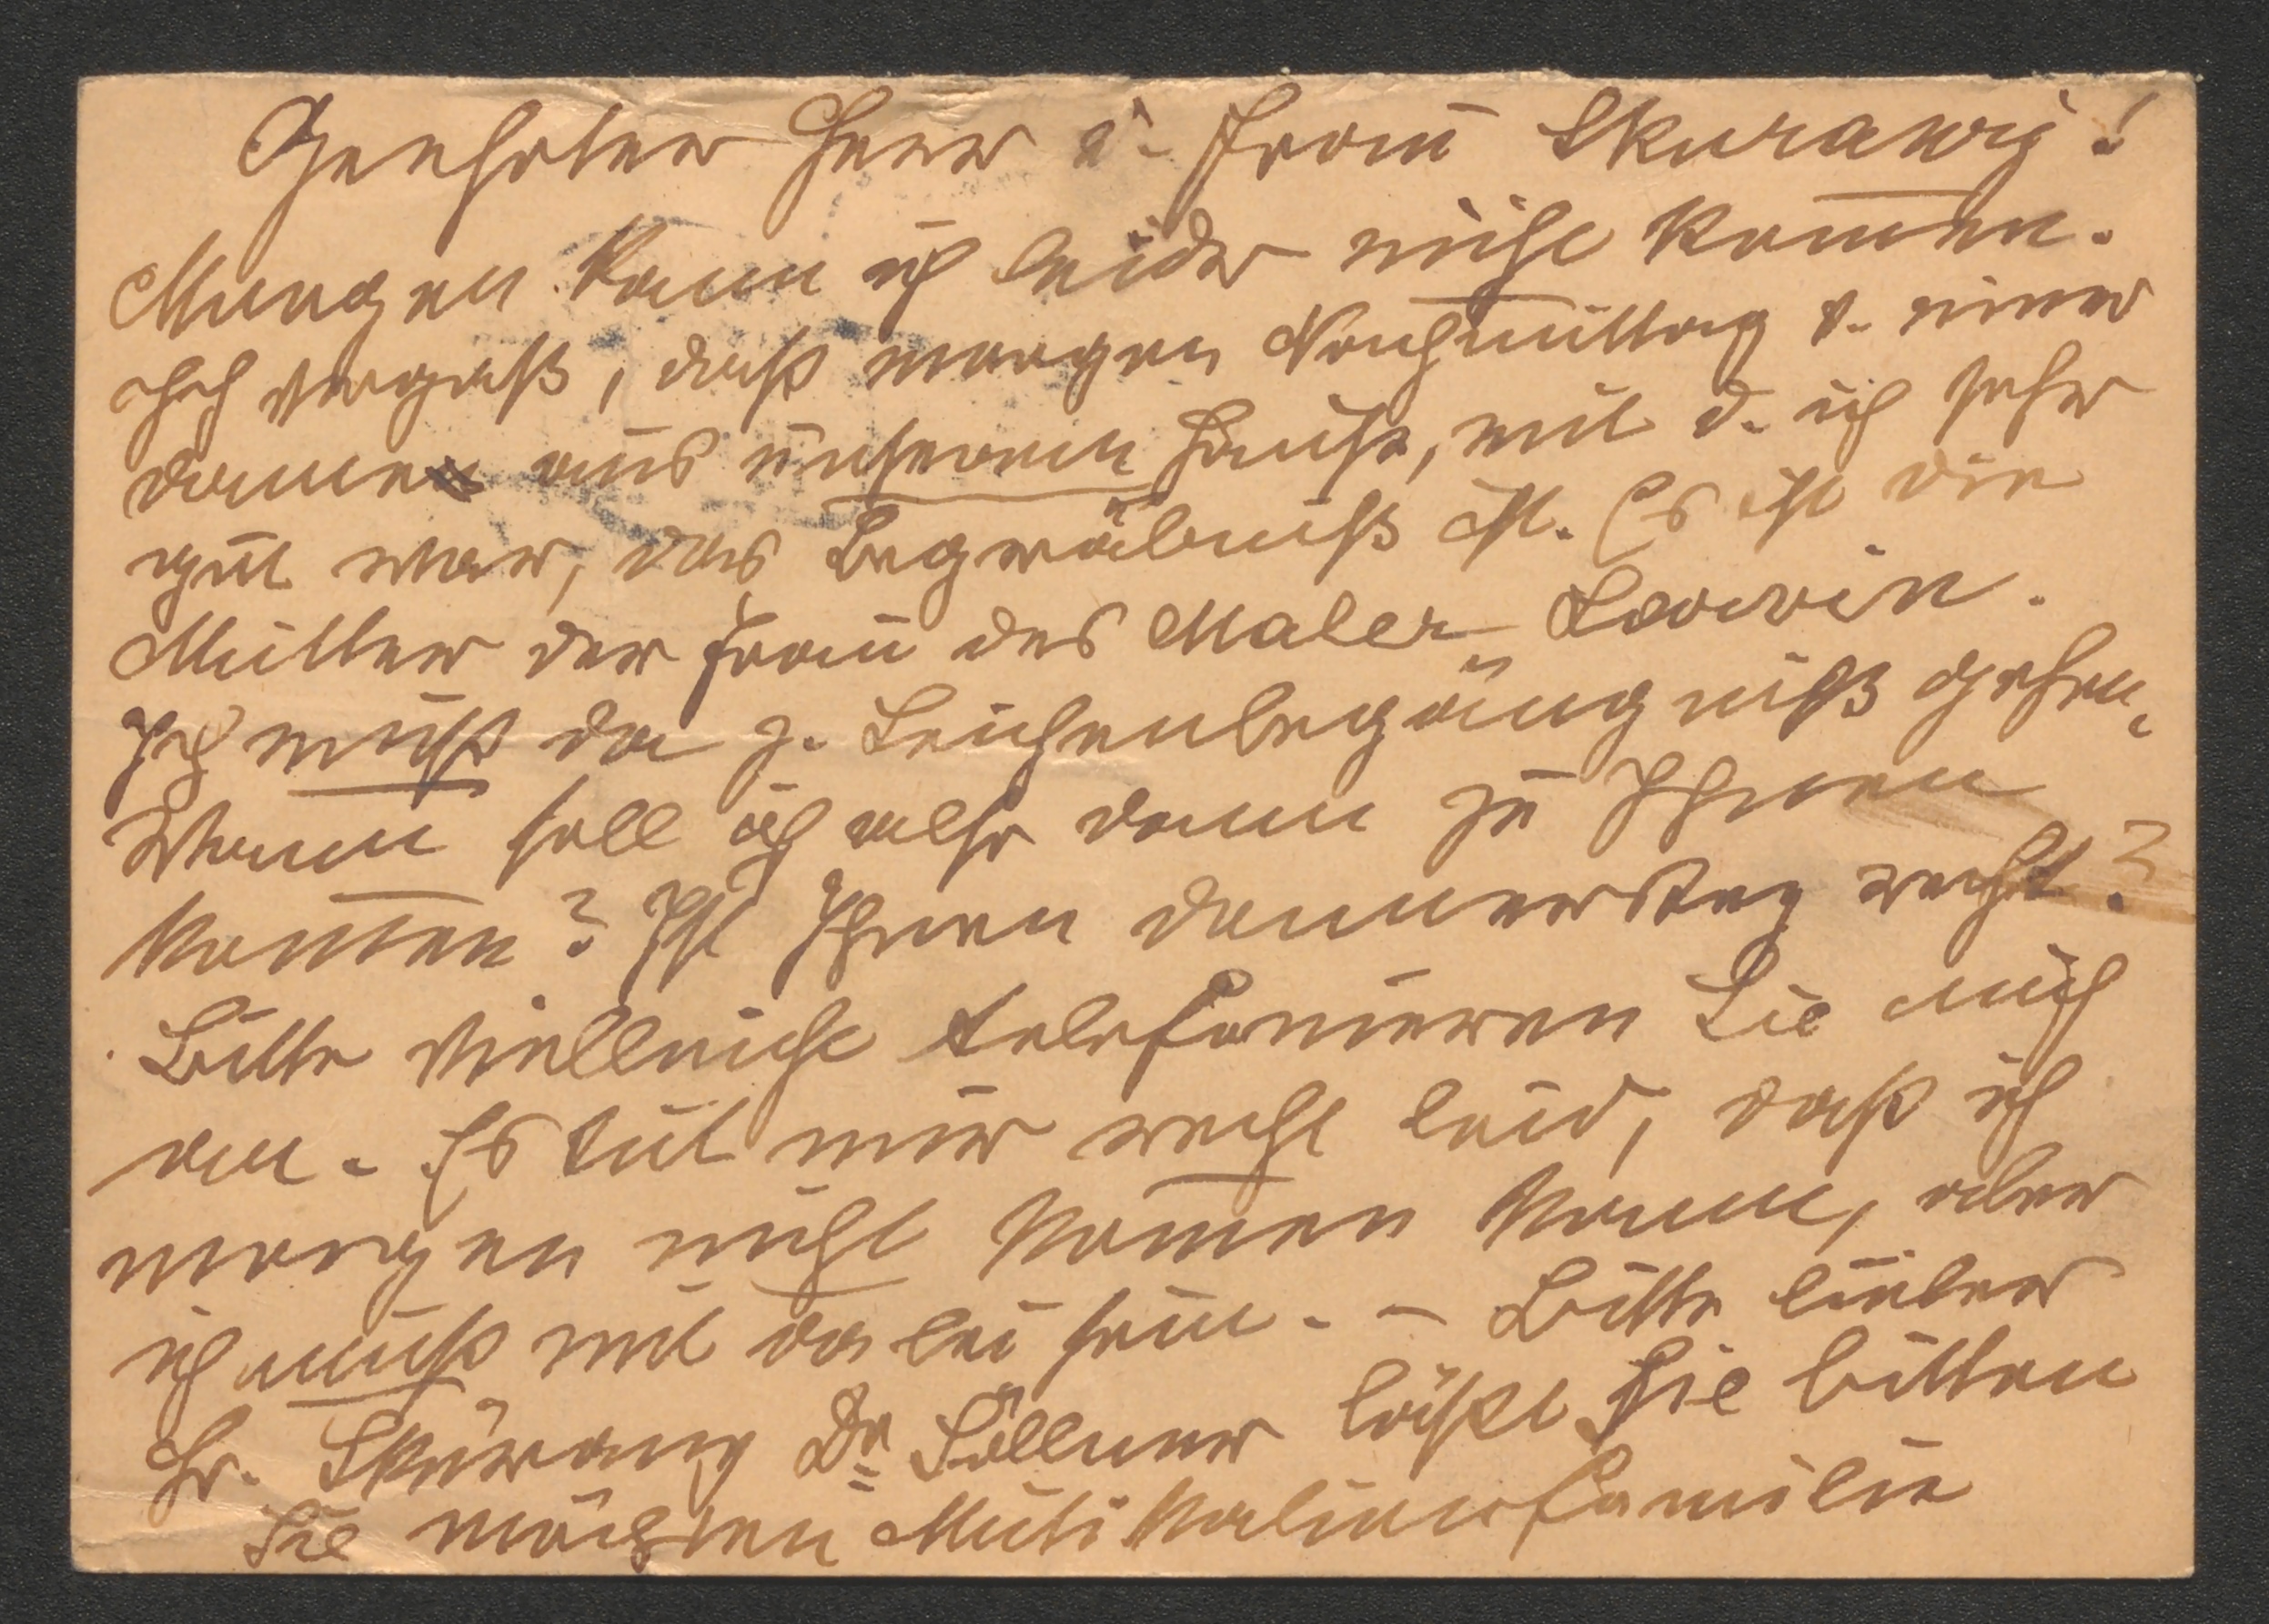 Geehrter Herr u. Frau Skurawy!
Morgen kann ich leider nicht kom̅en.
Ich vergaß, daß morgen Nachmittag v. einer
Dame aus unserem Hause, mit d. ich sehr
gut war, das Begräbniß ist. Es ist die
Mutter der Frau des Maler Larwin.
Ich muß da z. Leichenbegängniß gehen.
Wann soll ich also dann zu Ihnen
kom̅en? Ist Ihnen Donnerstag recht?
Bitte vielleicht telefonieren Sie mich
an. Es tut mir recht leid, daß ich
morgen nicht kom̅en kann, aber
ich muß mit dabei sein. – Bitte lieber
Hr. Skurawy Dr Söllner läßt Sie bitten
Sie möchten Musikalien